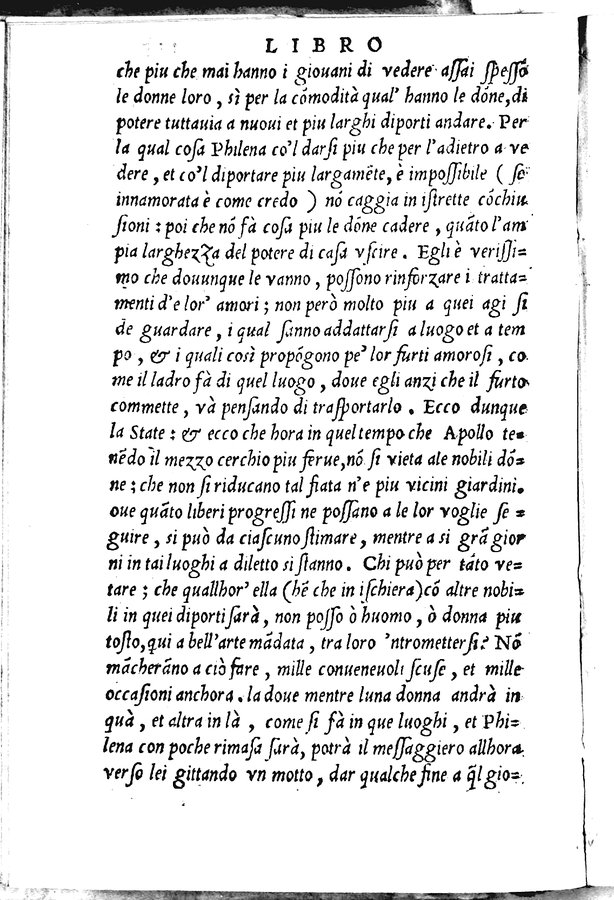 LIBRO
che piu che mai hanno i giouani di vedere aſſai ſpeſſo
le donne loro, sì per la cómodità qual' hanno le dóne, di
potere tuttauia a nuoui et piu larghi diporti andare. Per
la qual coſa Philena co'l darſi piu che per l'adietro a ve
dere, et co'l diportare piu largamẽte, è impoſſibile (ſe
innamorata è come credo) nó caggia in iſtrette cóchiu
ſioni: poi che nó fà coſa piu le dóne cadere, quãto l'am
pia larghezza del potere di caſa vſcire. Egli è veriſſi=
mo che douunque le vanno, poſſono rinforzare i tratta=
menti d'e lor' amori; non però molto piu a quei agi ſi
de guardare, i qual ſanno addattarſi a luogo et a tem
po, & i quali così propógono pe' lor furti amoroſi, co
me il ladro fà di quel luogo, doue egli anzi che il furto
commette, và penſando di traſportarlo. Ecco dunque
la State: & ecco che hora in quel tempo che Apollo te=
nẽdo il mezzo cerchio piu ferue, nó ſi vieta ale nobili dó=
ne; che non ſi riducano tal fiata n'e piu vicini giardini.
oue quãto liberi progreſſi ne poſſano a le lor voglie ſe=
guire, si può da ciaſcuno ſtimare, mentre a si grã gior
ni in tai luoghi a diletto si ſtanno. Chi può per tãto ve=
tare; che quallhor' ella (bẽ che in iſchiera) có altre nobi=
li in quei diporti ſarà, non poſſo ò huomo, ò donna piu
toſto, qui a bell'arte mãdata, tra loro 'ntrometterſi? Nó
mãcherãno a ciò fare, mille conueneuoli ſcuſe, et mille
occaſioni anchora. la doue mentre luna donna andrà in
quà, et altra in là, come ſi fà in que luoghi, et Phi=
lena con poche rimaſa ſarà, potrà il meſſaggiero allhora
verſo lei gittando vn motto, dar qualche fine a q̃l gio=